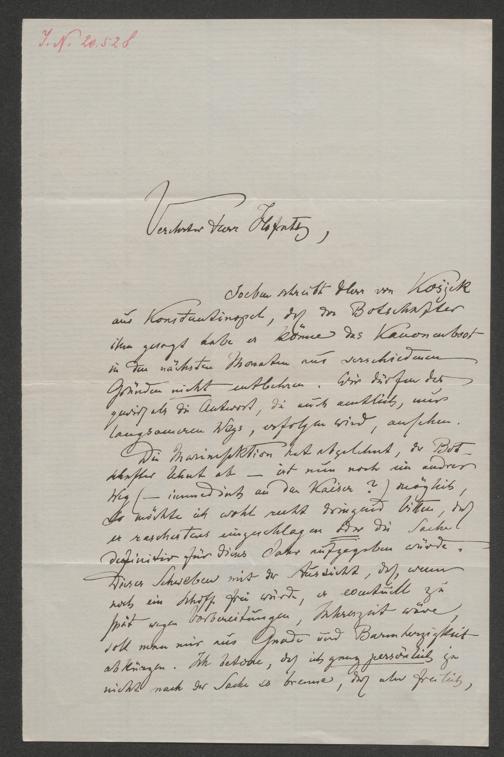 J. N. 20.528
Verehrter Herr Hofrath,
Soeben schreibt Herr von Kosjek
aus Konstantinopel, daß der Botschafter
ihm gesagt habe er könne das Kanonenboot
in den nächsten Monaten aus verschiedenen
Gründen nicht entbehren. Wir dürfen das
gewiß als die Antwort, die auch amtlich, nur
langsameren Wegs, erfolgen wird, ansehen.
Die Marinesektion hat abgelehnt, der Bot-
schafter lehnt ab — ist nun noch ein andrer
Weg (— immediat an den Kaiser?) möglich,
so möchte ich wohl recht dringend bitten, daß
er raschestens eingeschlagen oder die Sache
definitiv für dieses Jahr aufgegeben würde.
Dieses Schweben mit der Aussicht, daß, wenn
noch ein Schiff frei würde, es eventuell zu
spät wegen Vorbereitungen, Jahreszeit wäre,
soll man mir aus Gnade und Barmherzigkeit
abkürzen. Ich betone, daß ich ganz persönlich ja
nicht nach der Sache so brenne, daß aber freilich,